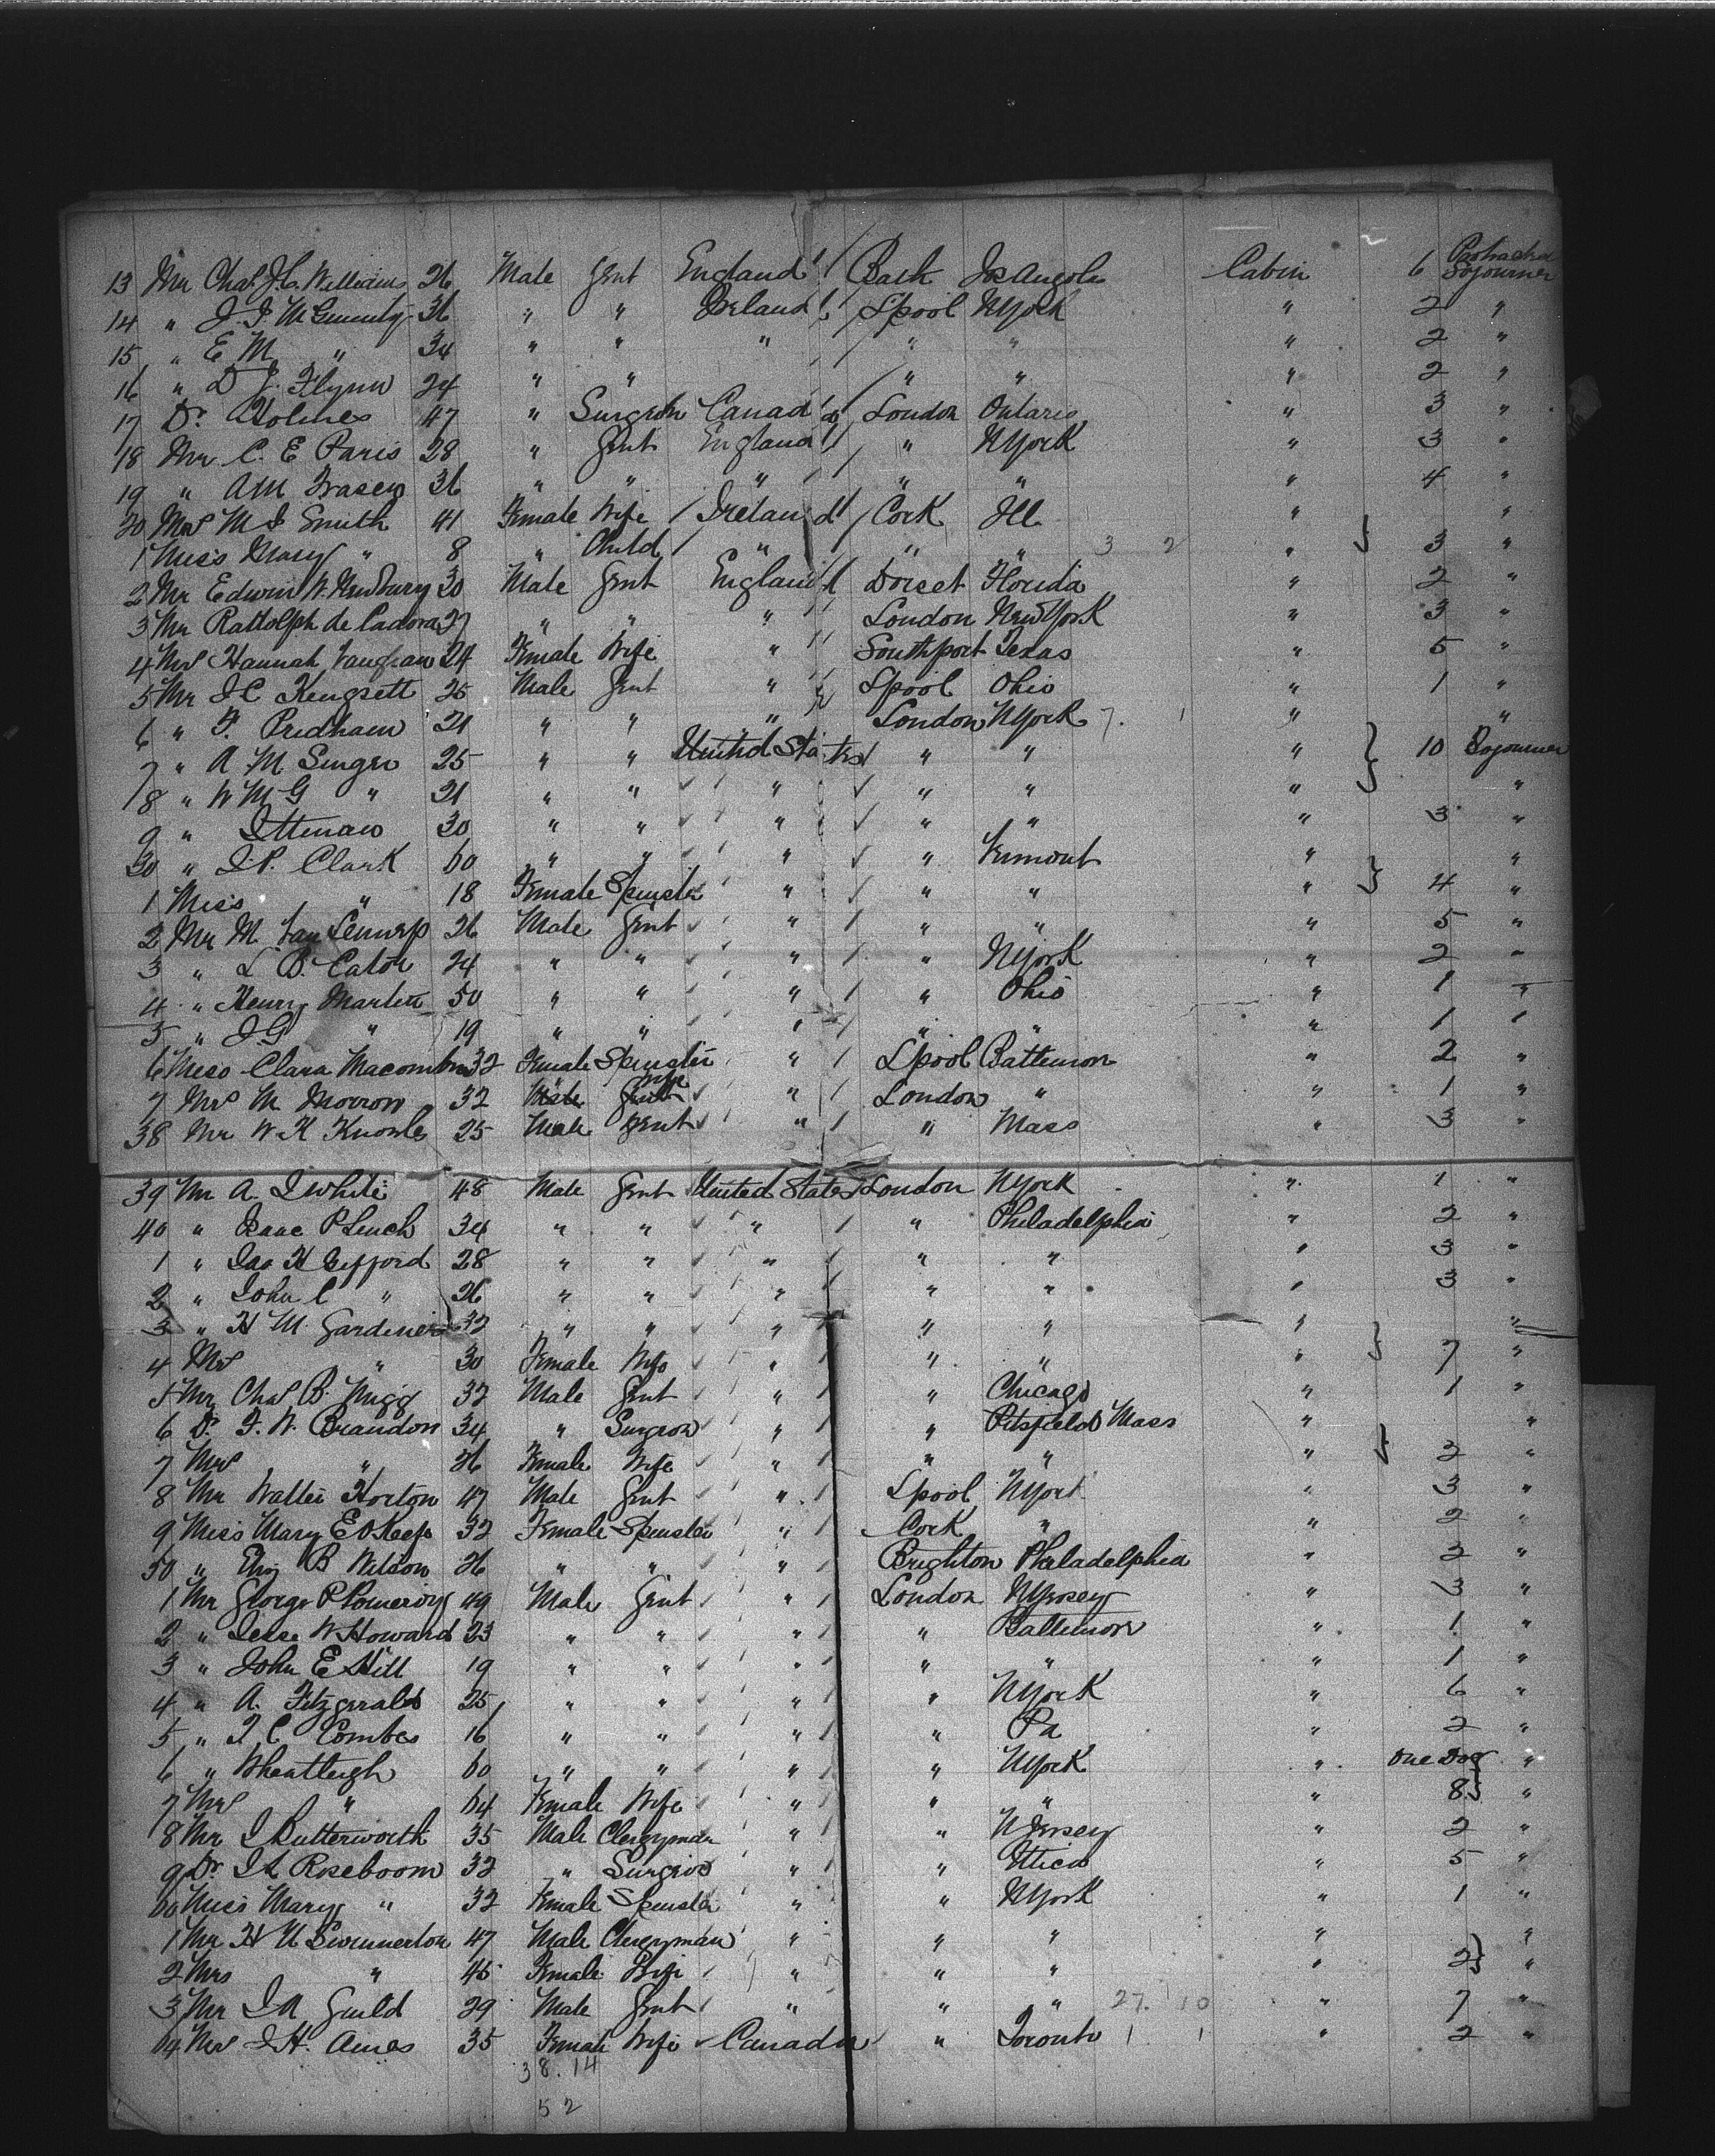 13 Mr Chas J.C. Williams 26 Male Gent England Bath Los Angeles Cabin 6 Sojourner
14 " J. J. McGuinty 36 " " Ireland Lpool NYork " 2 "
15 " E M " 34 " " " " " " 2 "
16 " D J. Flynn 24 " " " " " 2 "
17 Dr. Holmes 47 " Surgeon Canada London Ontario " 3 "
18 Mr C. E Paris 28 " Gent England " NYork " 3 "
19 " AM Fraser 36 " " " " " " 4 "
20 Mrs M J Smith 41 Female Wife Ireland Cork Ill " "
1 Miss Mary " 8 " Child " " " 3 2 " } 3 "
2 Mr Edwin W. Newbury 30 Male Gent England Dorset Florida " 2 "
3 Mr de 27 " " " London New York " 3 "
4 Mrs Hannah Vaughan 24 Female Wife " Southport Texas " 5 "
5 Mr J C Kengsett 25 Male Gent " Lpool Ohio " 1 "
6 " F. Pridham 21 " " " London NYork 7. 1 " "
7 " A. M Singer 25 " " United States " " " } 10 Sojourner
8 " W M G " 21 " " " " " " } "
9 " Ittman 30 " " " " " " 3 "
30 " J. P. Clark 60 " " " " Vermont " "
1 Miss " 18 Female Spinster " " " " } 4 "
2 Mr M. Van Lennep 26 Male Gent " " " " 5 "
3 " L B. Eaton 24 " " " " NYork " 2 "
4 " Henry Martin 50 " " " " Ohio " 1 "
5 " J. G " 19 " " " " " " 1 "
6 Miss Clara Macomber 32 Female Spinster " Lpool Baltimore " 2 "
7 Mrs M Morrow 32 Male Gent Wife " London " " 1 "
38 Mr W H Knowles 25 Male Gent " " Mass " 3 "
39 Mr A. J White 48 Male Gent United States London NYork " 1 "
40 " Isaac P Leuch 34 " " " " Philadelphia " 2 "
1 " Jas H Gifford 28 " " " " " " 3 "
2 " John C " 26 " " " " " " 3 "
3 " H M. Gardiner 32 " " " " " " "
4 Mrs " 30 Female Wife " " " " } 7 "
5 Mr Chas B. 32 Male Gent " " Chicago " 1 "
6 Dr. F. W. Brandon 34 " Surgeon " " Pitsfield Mass " "
7 Mrs " 26 Female Wife " " " " } 2 "
8 Mr Walter Horton 47 Male Gent " Lpool NYork " 3 "
9 Miss Mary E OKeefe 32 Female Spinster " Cork " " 2 "
50 " Eliz B Wilson 26 " " " Brighton Philadelphia " 2 "
1 Mr George P Pomeroy 49 Male Gent " London NJersey " 3 "
2 " Jesse W Howard 23 " " " " Baltimore " 1 "
3 " John E Hill 19 " " " " " " 1 "
4 " A. Fitzgerald 25 " " " " NYork " 6 "
5 " J C Combes 16 " " " " Pa " 2 "
6 " Wheatleigh 60 " " " " NYork " One Dog "
7 Mrs " 64 Female Wife " " " " 8} "
8 Mr J Butterworth 35 Male Clergyman " " NJersey " 2 "
9 Dr. J A Roseboom 32 " Surgeon " " Utica " 5 "
60 Miss Mary " 32 Female Spinster " " NYork " 1 "
1 Mr H U Swinnerton 47 Male Clergyman " " " " "
2 Mrs " 45 Female Wife " " " " 2} "
3 Mr J A Guild 29 Male Gent " " " 27. 10 " 7 "
64 Mrs J H. Ames 35 Female Wife Canada " Toronto 1 1 " 2 "
38. 14
52